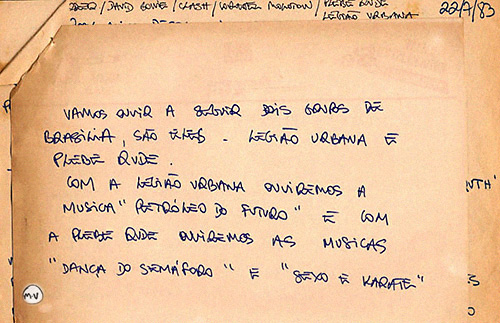 / DAVID BOWIE / CLASH / / PLEBE RUDE
LEGIÃO URBANA
22/7/83
VAMOS OUVIR A SEGUIR DOIS GRUPOS DE
BRASÍLIA, SÃO ELES - LEGIÃO URBANA E
PLEBE RUDE.
COM A LEGIÃO URBANA OUVIREMOS A
MUSICA "PETRÓLEO DO FUTURO" E COM
A PLEBE RUDE OUVIREMOS AS MUSICAS
"DANÇA DO SEMÁFORO" E "SEXO E KARATÊ"
MV